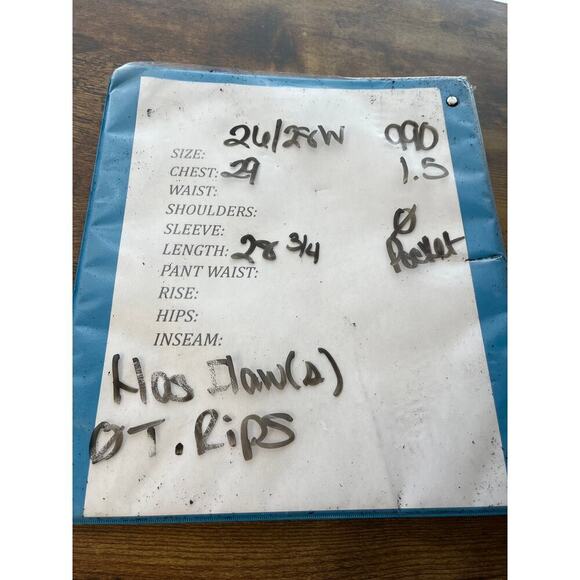 SIZE: 26/28W 990
CHEST: 29 1.5
WAIST:
SHOULDERS: Ø
SLEEVE: Pocket
LENGTH: 28 3/4
PANT WAIST:
RISE:
HIPS:
INSEAM:
Has Flaw(s)
ØT. Rips